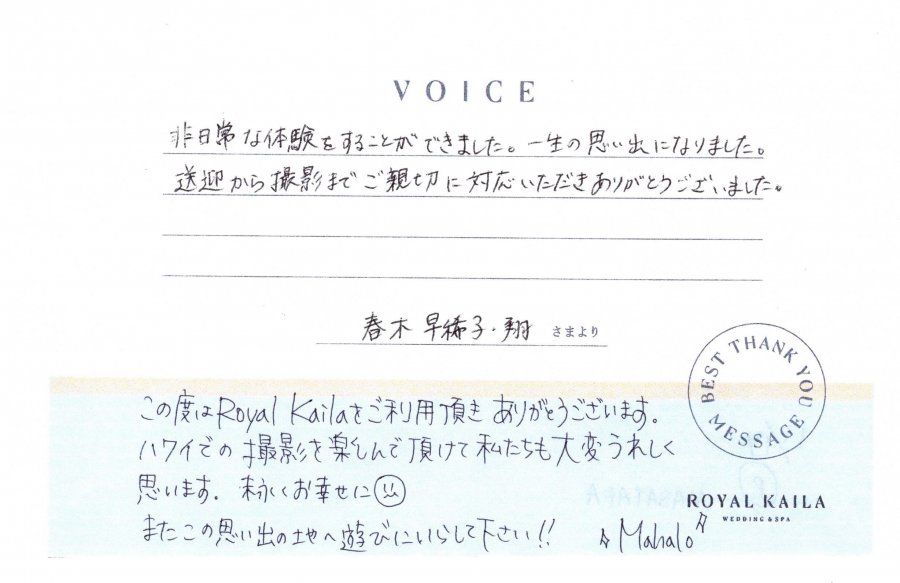 VOICE
非日常な体験をすることができました。一生の思い出になりました。
送迎から撮影までご親切に対応いただきありがとうございました。
春木 早稀子・翔 さまより
BEST THANK YOU MESSAGE
この度はRoyal Kailaをご利用頂き ありがとうございます。
ハワイでの 撮影を楽しんで頂けて 私たちも 大変うれしく
思います。末永くお幸せに
ROYAL KAILA
WEDDING & SPA
またこの思い出の地へ遊びにいらして下さい!!
Mahalo